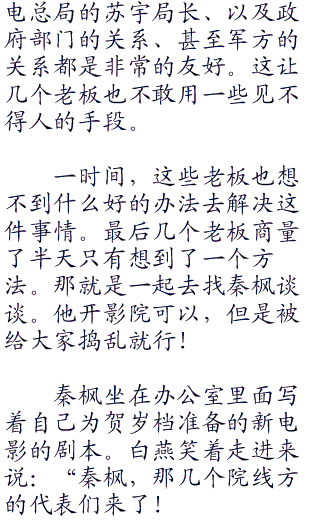 电总局的苏宇局长、以及政
府部门的关系、甚至军方的
关系都是非常的友好。这让
几个老板也不敢用一些见不
得人的手段。
一时间，这些老板也想
不到什么好的办法去解决这
件事情。最后几个老板商量
了半天只有想到了一个方
法。那就是一起去找秦枫谈
谈。他开影院可以，但是被
给大家捣乱就行！
秦枫坐在办公室里面写
着自己为贺岁档准备的新电
影的剧本。白燕笑着走进来
说：“秦枫，那几个院线方
的代表们来了！